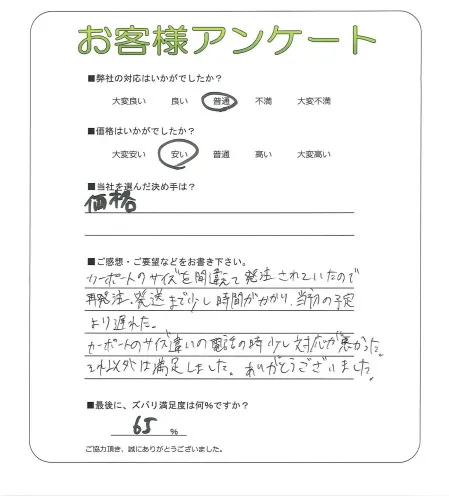 お客様アンケート
■弊社の対応はいかがでしたか？
大変良い 良い 普通 不満 大変不満
■価格はいかがでしたか？
大変安い 安い 普通 高い 大変高い
■当社を選んだ決め手は？
価格
■ご感想・ご要望などをお書き下さい。
カーポートのサイズを間違えて発注されていたので
再発注、発送まで少し時間がかかり、当初の予定
より遅れた。
カーポートのサイズ違いの電話の時少し対応が悪かった。
それ以外は満足しました。ありがとうございました。
■最後に、ズバリ満足度は何%ですか？
65 %
ご協力頂き、誠にありがとうございました。